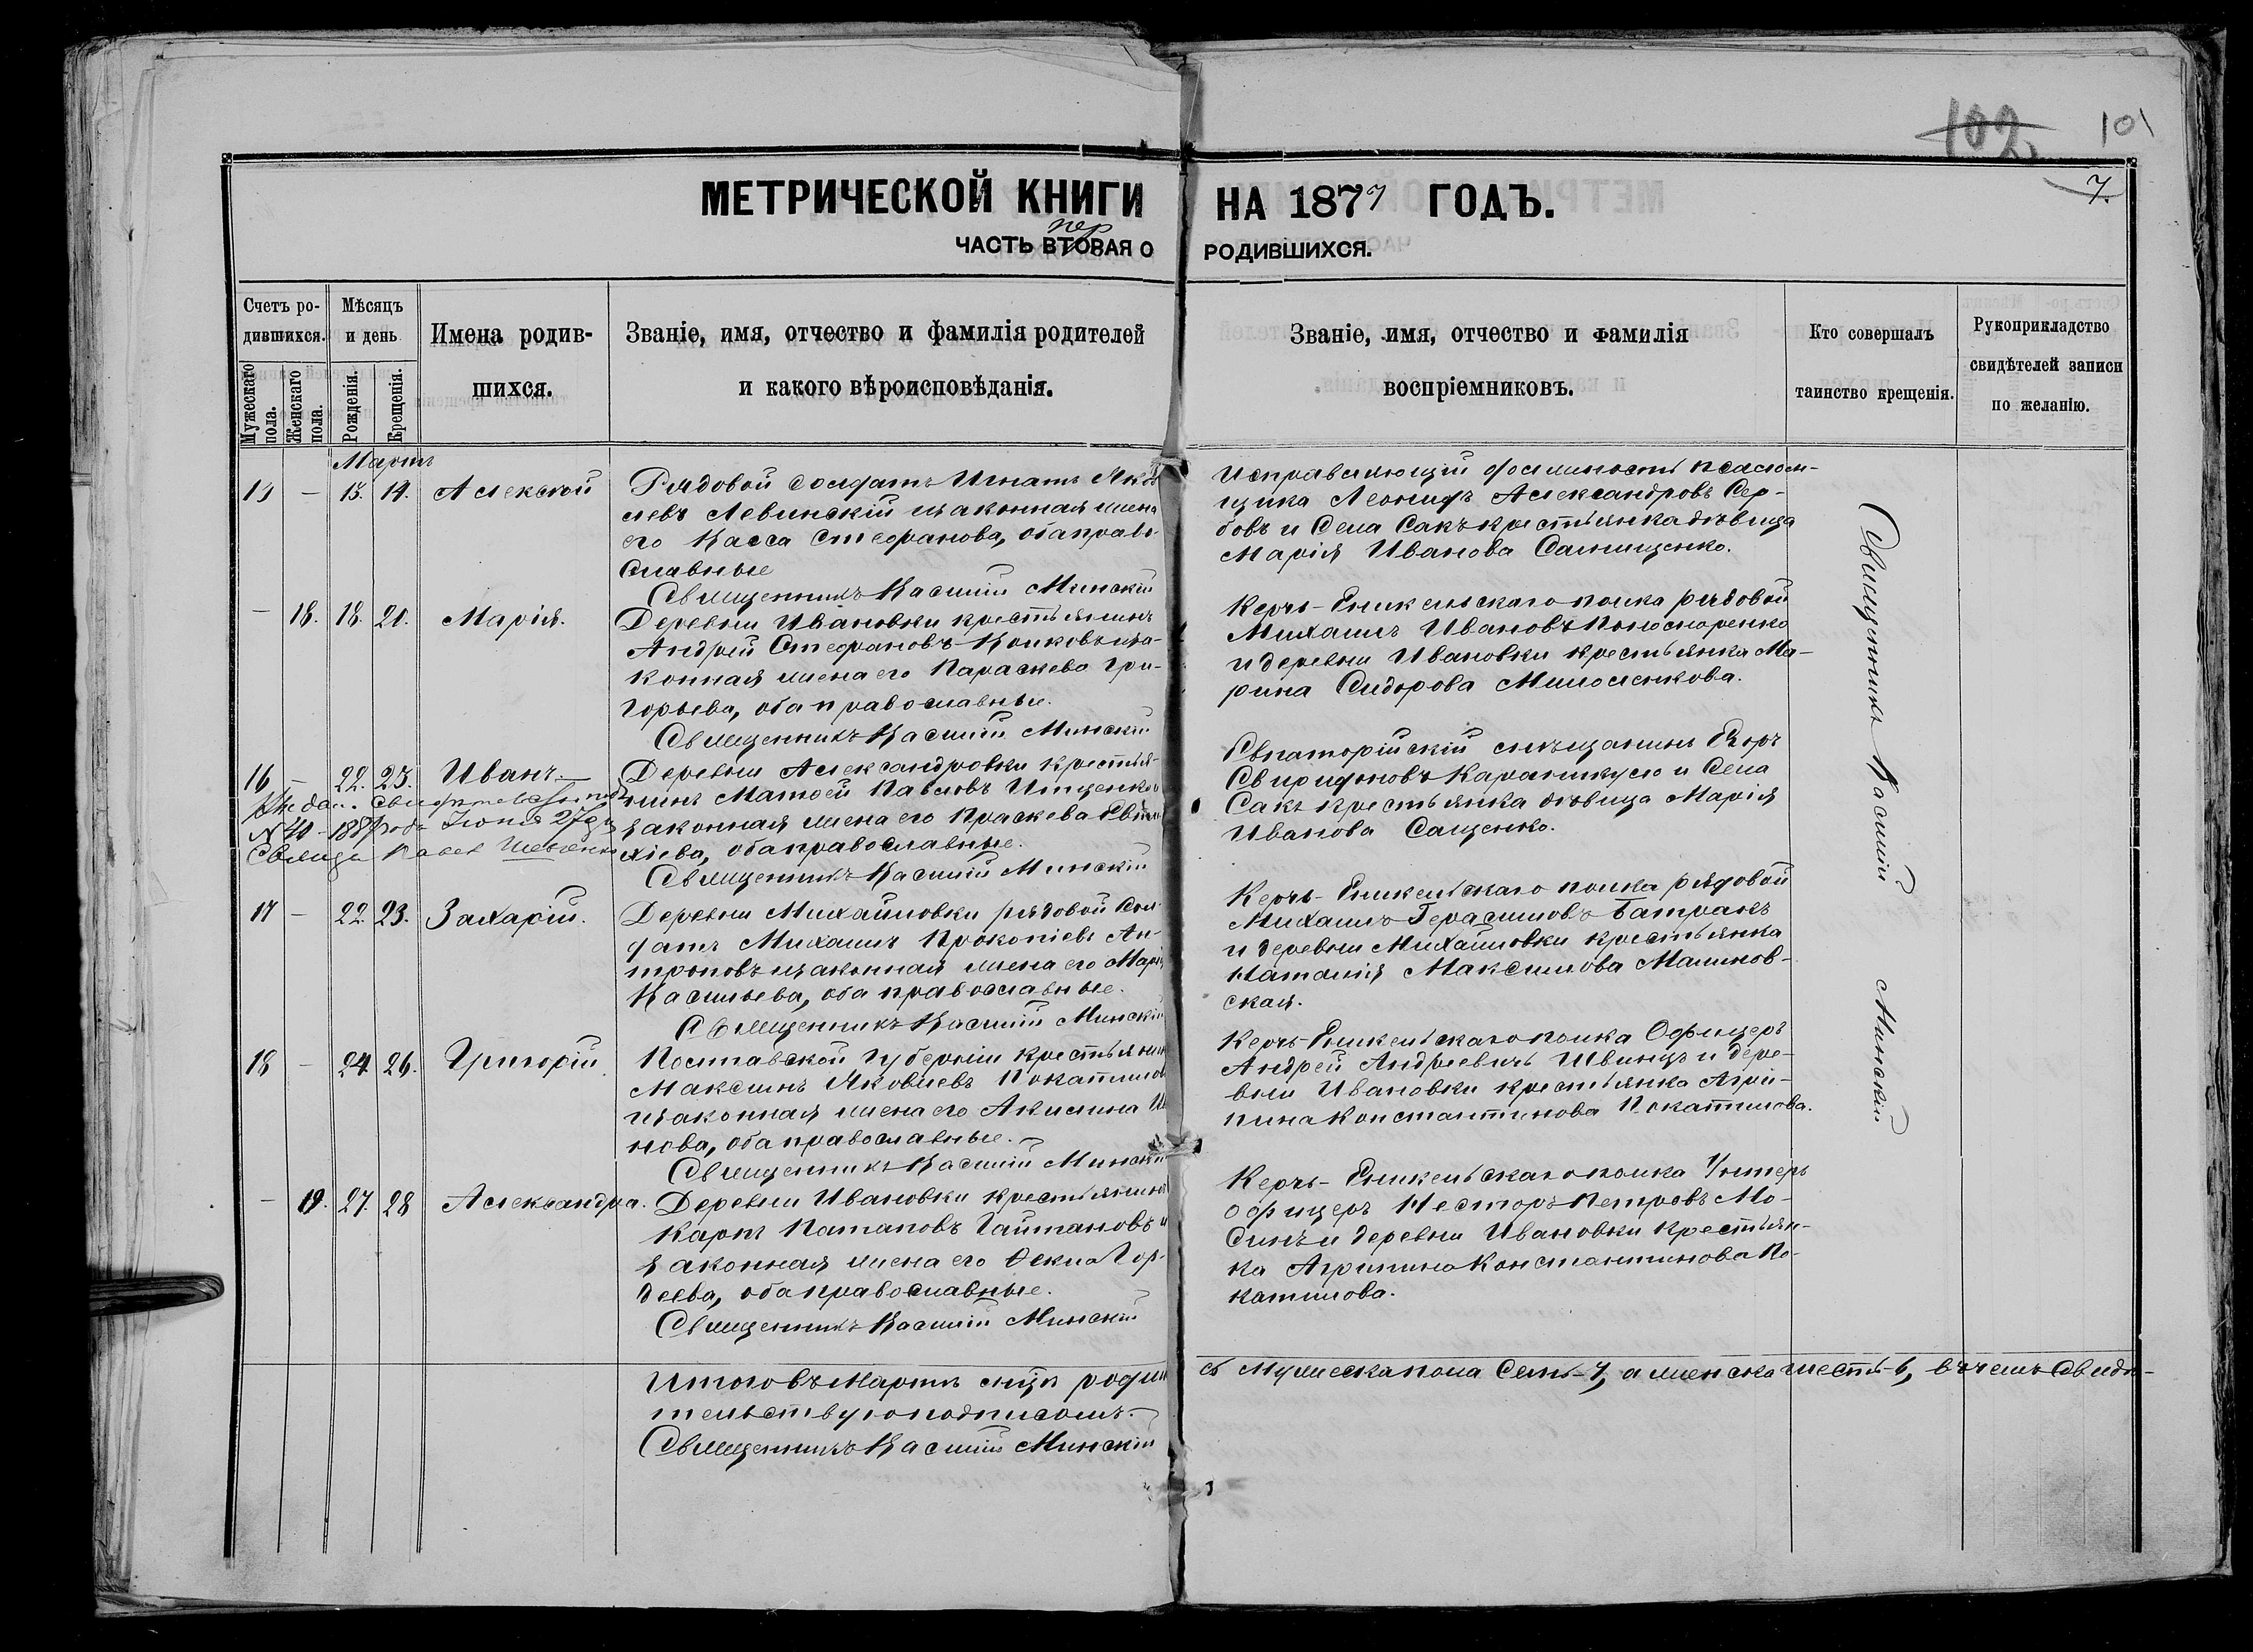 102 101
МЕТРИЧЕСКОЙ КНИГИ НА 1877 ГОДЪ.
7.
ЧАСТЬ ВТОРАЯ О РОДИВШИХСЯ.
пер
Счетъ ро-
дившихся.
Мужескаго пола.
Женскаго пола.
Мѣсяцъ
и день
Рожденія.
Крещенія.
Имена родив-
шихся.
Званіе, имя, отчество и фамилія родителей
и какого вѣроисповѣданія.
Званіе, имя, отчество и фамилія
воспріемниковъ.
Кто совершалъ
таинство крещенія.
Рукоприкладство
свидѣтелей записи
по желанію.
Мартъ
15 — 13. 14. Алексѣй
Рядовой Солдатъ Игнатъ Яков
левъ Левинскій и законная жена
его Васса Стефанова, оба право-
славные
Священникъ Василій Минскій
Исправляющій должность псалом-
щика Леонидъ Александровъ Сер-
бовъ и Села Сакъ крестьянка дѣвица
Марія Ивановa
— 18. 18. 20. Марія.
Деревни Ивановки крестьянинъ
Андрей Стефановъ Волковъ и за-
конная жена его Параскева Гри-
горьева, оба православные.
Священникъ Василій Минскій
Керчь-Еникельскаго полка рядовой
Михаилъ Ивановъ
и деревни Ивановки крестьянка Ма-
рина Сидорова
16 — 22. 23. Иванъ.
Деревни Александровки крестья-
нинъ Матфей Павловъ Ищенко и
законная жена его Праскева Евти
хіева, оба православные.
Священникъ Василій Минскій
№ 40 - года Іюня 27 дня
Священ Павел
Евпаторійскій мѣщанинъ Егоръ
Свиридоновъ и Села
Сакъ крестьянка дѣвица Марія
Иванова Сащенко.
17 — 22. 23. Захарій.
Деревни Михайловки рядовой Сол-
датъ Михаилъ Прокопіевъ Ан-
троповъ и законная жена его Марія
Васильева, оба православные.
Священникъ Василій Минскій
Керчь-Еникельскаго полка рядовой
Михаилъ Герасимовъ Батракъ
и деревни Михайловки крестьянка
Наталія Максимова Малинов-
ская.
18 — 24 26. Григорій.
Полтавской губерніи крестьянинъ
Максимъ Яковлевъ Покатилов
и законная жена его Акилина Ива
нова, оба православные.
Священникъ Василій Минскій
Керчь-Еникельскаго полка Офицеръ
Андрей Андреевичъ Швинцъ и дере-
вни Ивановки крестьянка Агри-
пина Константинова Покатилова.
— 19. 27. 28 Александра.
Деревни Ивановки крестьянинъ
Карпъ Патаповъ Гайтановъ и
законная жена его Ѳекла Гор-
деева, оба православные.
Священникъ Василій Минскій
Керчь-Еникельскаго полка Унтеръ
офицеръ Несторъ Петровъ Мо-
синъ и деревни Ивановки крестьян-
ка Агрипина Константинова По-
катилова.
Священникъ Василій Минскій
Итого въ Мартѣ мѣсяцѣ родил
съ мужеска пола Семь-7, а женска шесть-6, въ чемъ Свидѣ-
тельствую подписомъ.
Священникъ Василій Минскій